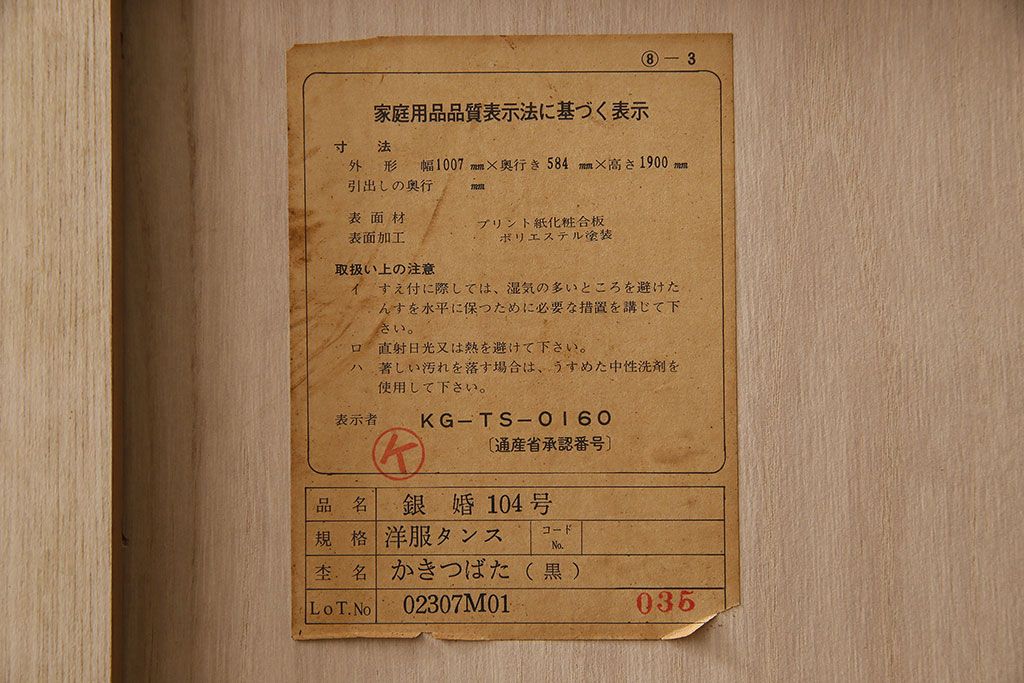 ⑧－3
家庭用品品質表示法に基づく表示
寸　法
外　形　幅1007㎜×奥行き584㎜×高さ1900㎜
引出しの奥行　㎜
表面材　プリント紙化粧合板
表面加工　ポリエステル塗装
取扱い上の注意
イ　すえ付に際しては、湿気の多いところを避けた
んすを水平に保つために必要な措置を講じて下
さい。
ロ　直射日光又は熱を避けて下さい。
ハ　著しい汚れを落す場合は、うすめた中性洗剤を
使用して下さい。
表示者　KG－TS－0160
〔通産省承認番号〕
K
品名　銀婚104号
規格　洋服タンス　コードNo.
杢名　かきつばた（黒）
LoT.No　02307M01　035